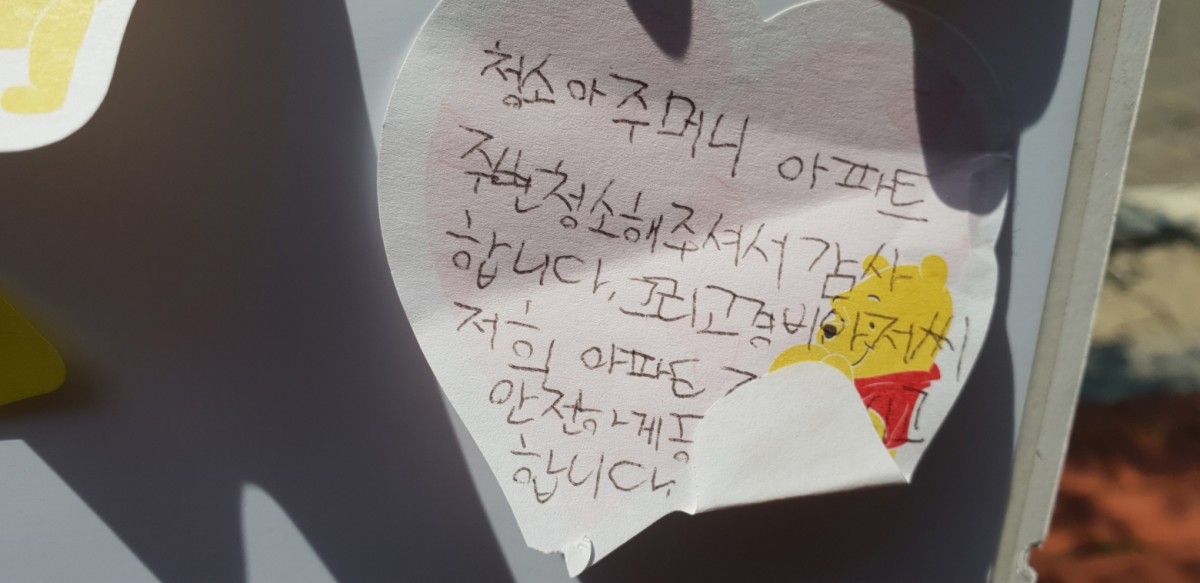 청소 아주머니 아파트
주변 청소해주셔서 감사
합니다. 그리고 경비아저씨
저희 아파트
안전하게
합니다.